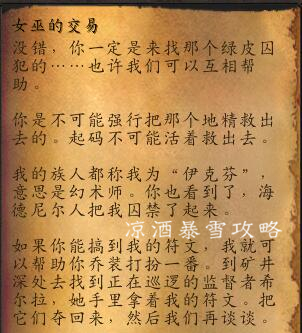 女巫的交易
没错，你一定是来找那个绿皮囚
犯的……也许我们可以互相帮
助。
你是不可能强行把那个地精救出
去的。起码不可能活着救出去。
我的族人都称我为“伊克芬”，
意思是幻术师。你也看到了，海
德尼尔人把我囚禁了起来。
凉酒暴雪攻略
如果你能搞到我的符文，我就可
以帮助你乔装打扮一番。到矿井
深处去找到正在巡逻的监督者希
尔拉，她手里拿着我的符文。把
它们夺回来，然后我们再谈谈。